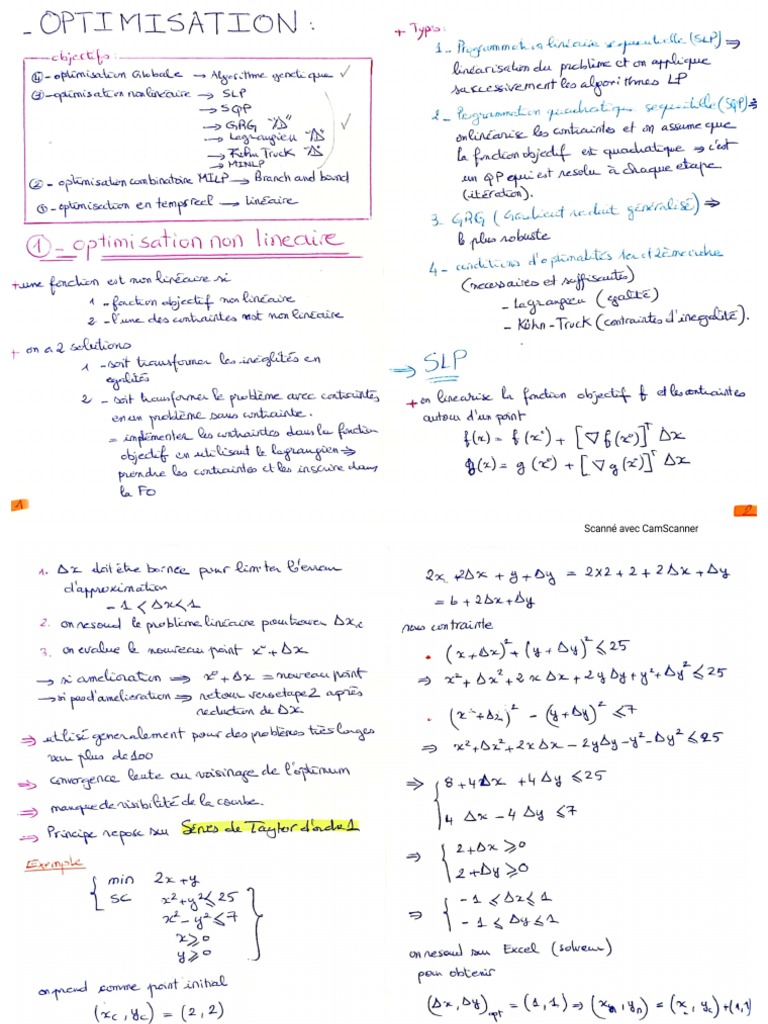 - OPTIMISATION :
objectifs :
④ - optimisation Globale → Algorithme genetique ✓
③ - optimisation non linéaire → SLP
→ SQP
→ GRG "Δ"
→ Lagrangien "Δ"
→ Kühn Truck "Δ"
→ MINLP
✓
② - optimisation combinatoire MILP → Branch and bound
① - optimisation en temps reel → linéaire
① - optimisation non lineaire
+ une fonction est non linéaire si
1 - fonction objectif non linéaire
2 - l'une des contraintes est non linéaire
+ on a 2 solutions
1 - soit transformer les inéglités en
egalités
2 - soit transformer le problème avec contraintes
en un problème sans contrainte.
= implémenter les contraintes dans la fonction
objectif en utilisant le lagrangien ⇒
prendre les contraintes et les inscrire dans
la FO
1
+ Types :
1 - Programmation linéaire sequentielle (SLP) ⇒
linéarisation du problème et on applique
successivement les algorithmes LP
2 - Programmation quadratique sequentielle (SQP) ⇒
on linéarise les contraintes et on assume que
la fonction objectif est quadratique ⇒ c'est
un QP qui est resolu à chaque etape
(itération).
3. GRG (Gradient reduit généralisé) ⇒
le plus robuste
4 - conditions d'optimalités 1er et 2ème ordre
(necessaires et suffisantes)
- Lagrangien (egalité)
- Köhn-Truck (contraintes d'inegalité).
→ SLP
+ on linearise la fonction objectif f et les contraintes
autour d'un point
f(x) = f(x°) + [∇f(x°)]ᵀ Δx
g(x) = g(x°) + [∇g(x°)]ᵀ Δx
2
Scanné avec CamScanner
1. Δx doit être bornée pour limiter l'erreur
d'approximation
-1 < Δx < 1
2. on resoud le problème linéaire pour trouver Δx
3. on evalue le nouveau point x° + Δx
→ si amelioration ⇒ x° + Δx = nouveau point
→ si pas d'amelioration ⇒ retour vers etape 2 après
reduction de Δx
⇒ utilisé generalement pour des problèmes très larges
plus de 100
⇒ convergence lente au voisinage de l'optimum
⇒ manque de visibilité de la courbe.
⇒ Principe repose sur Séries de Taylor d'ordre 1
Exemple
{ min 2x + y
SC x² + y² ≤ 25
x² - y² ≤ 7
x ≥ 0
y ≥ 0
on prend comme point initial
(xc, yc) = (2, 2)
2x + 2Δx + y + Δy = 2x2 + 2 + 2Δx + Δy
= 6 + 2Δx + Δy
sous contrainte
• (x + Δx)² + (y + Δy)² ≤ 25
⇒ x² + Δx² + 2xΔx + 2yΔy + y² + Δy² ≤ 25
• (x + Δx)² - (y + Δy)² ≤ 7
⇒ x² + Δx² + 2xΔx - 2yΔy - y² - Δy² ≤ 25
⇒ { 8 + 4Δx + 4Δy ≤ 25
4Δx - 4Δy ≤ 7
⇒ { 2 + Δx ≥ 0
2 + Δy ≥ 0
⇒ { -1 ≤ Δx ≤ 1
-1 ≤ Δy ≤ 1
on resoud sur Excel (solveur)
pour obtenir
(Δx, Δy)opt = (1, 1) ⇒ (xn, yn) = (xc, yc) + (1, 1)